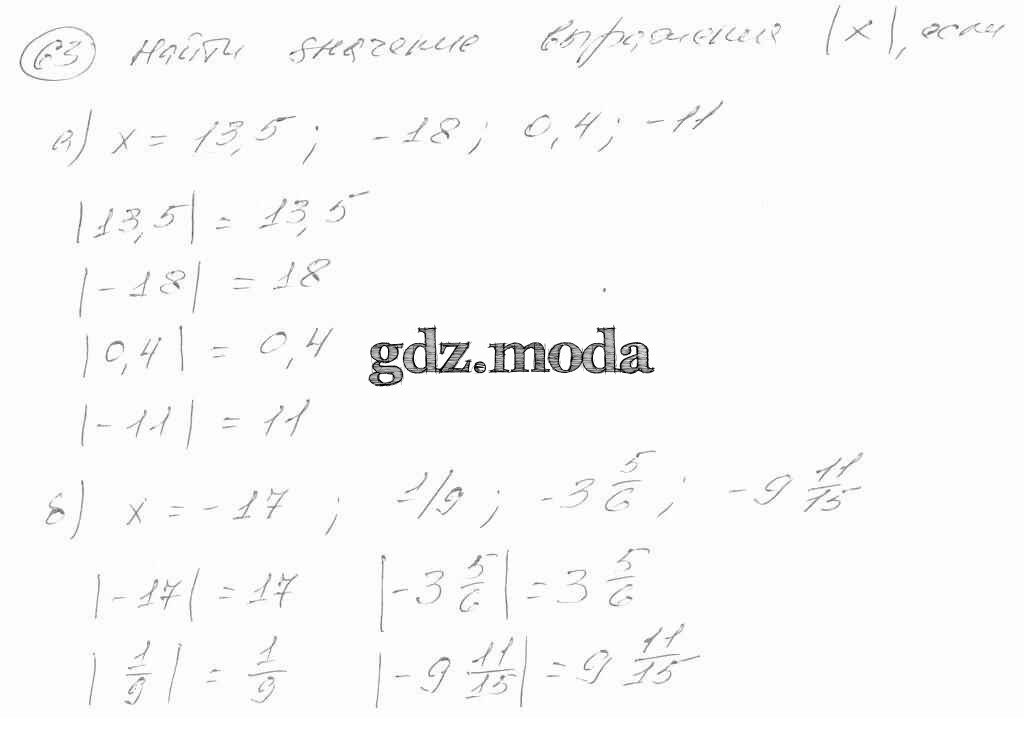 63 Найти значение выражения |x|, если
а) x = 13,5; -18; 0,4; -11
|13,5| = 13,5
|-18| = 18
|0,4| = 0,4
gdz.moda
|-11| = 11
б) x = -17; 1/9; -3 5/6; -9 11/15
|-17| = 17 |-3 5/6| = 3 5/6
|1/9| = 1/9 |-9 11/15| = 9 11/15